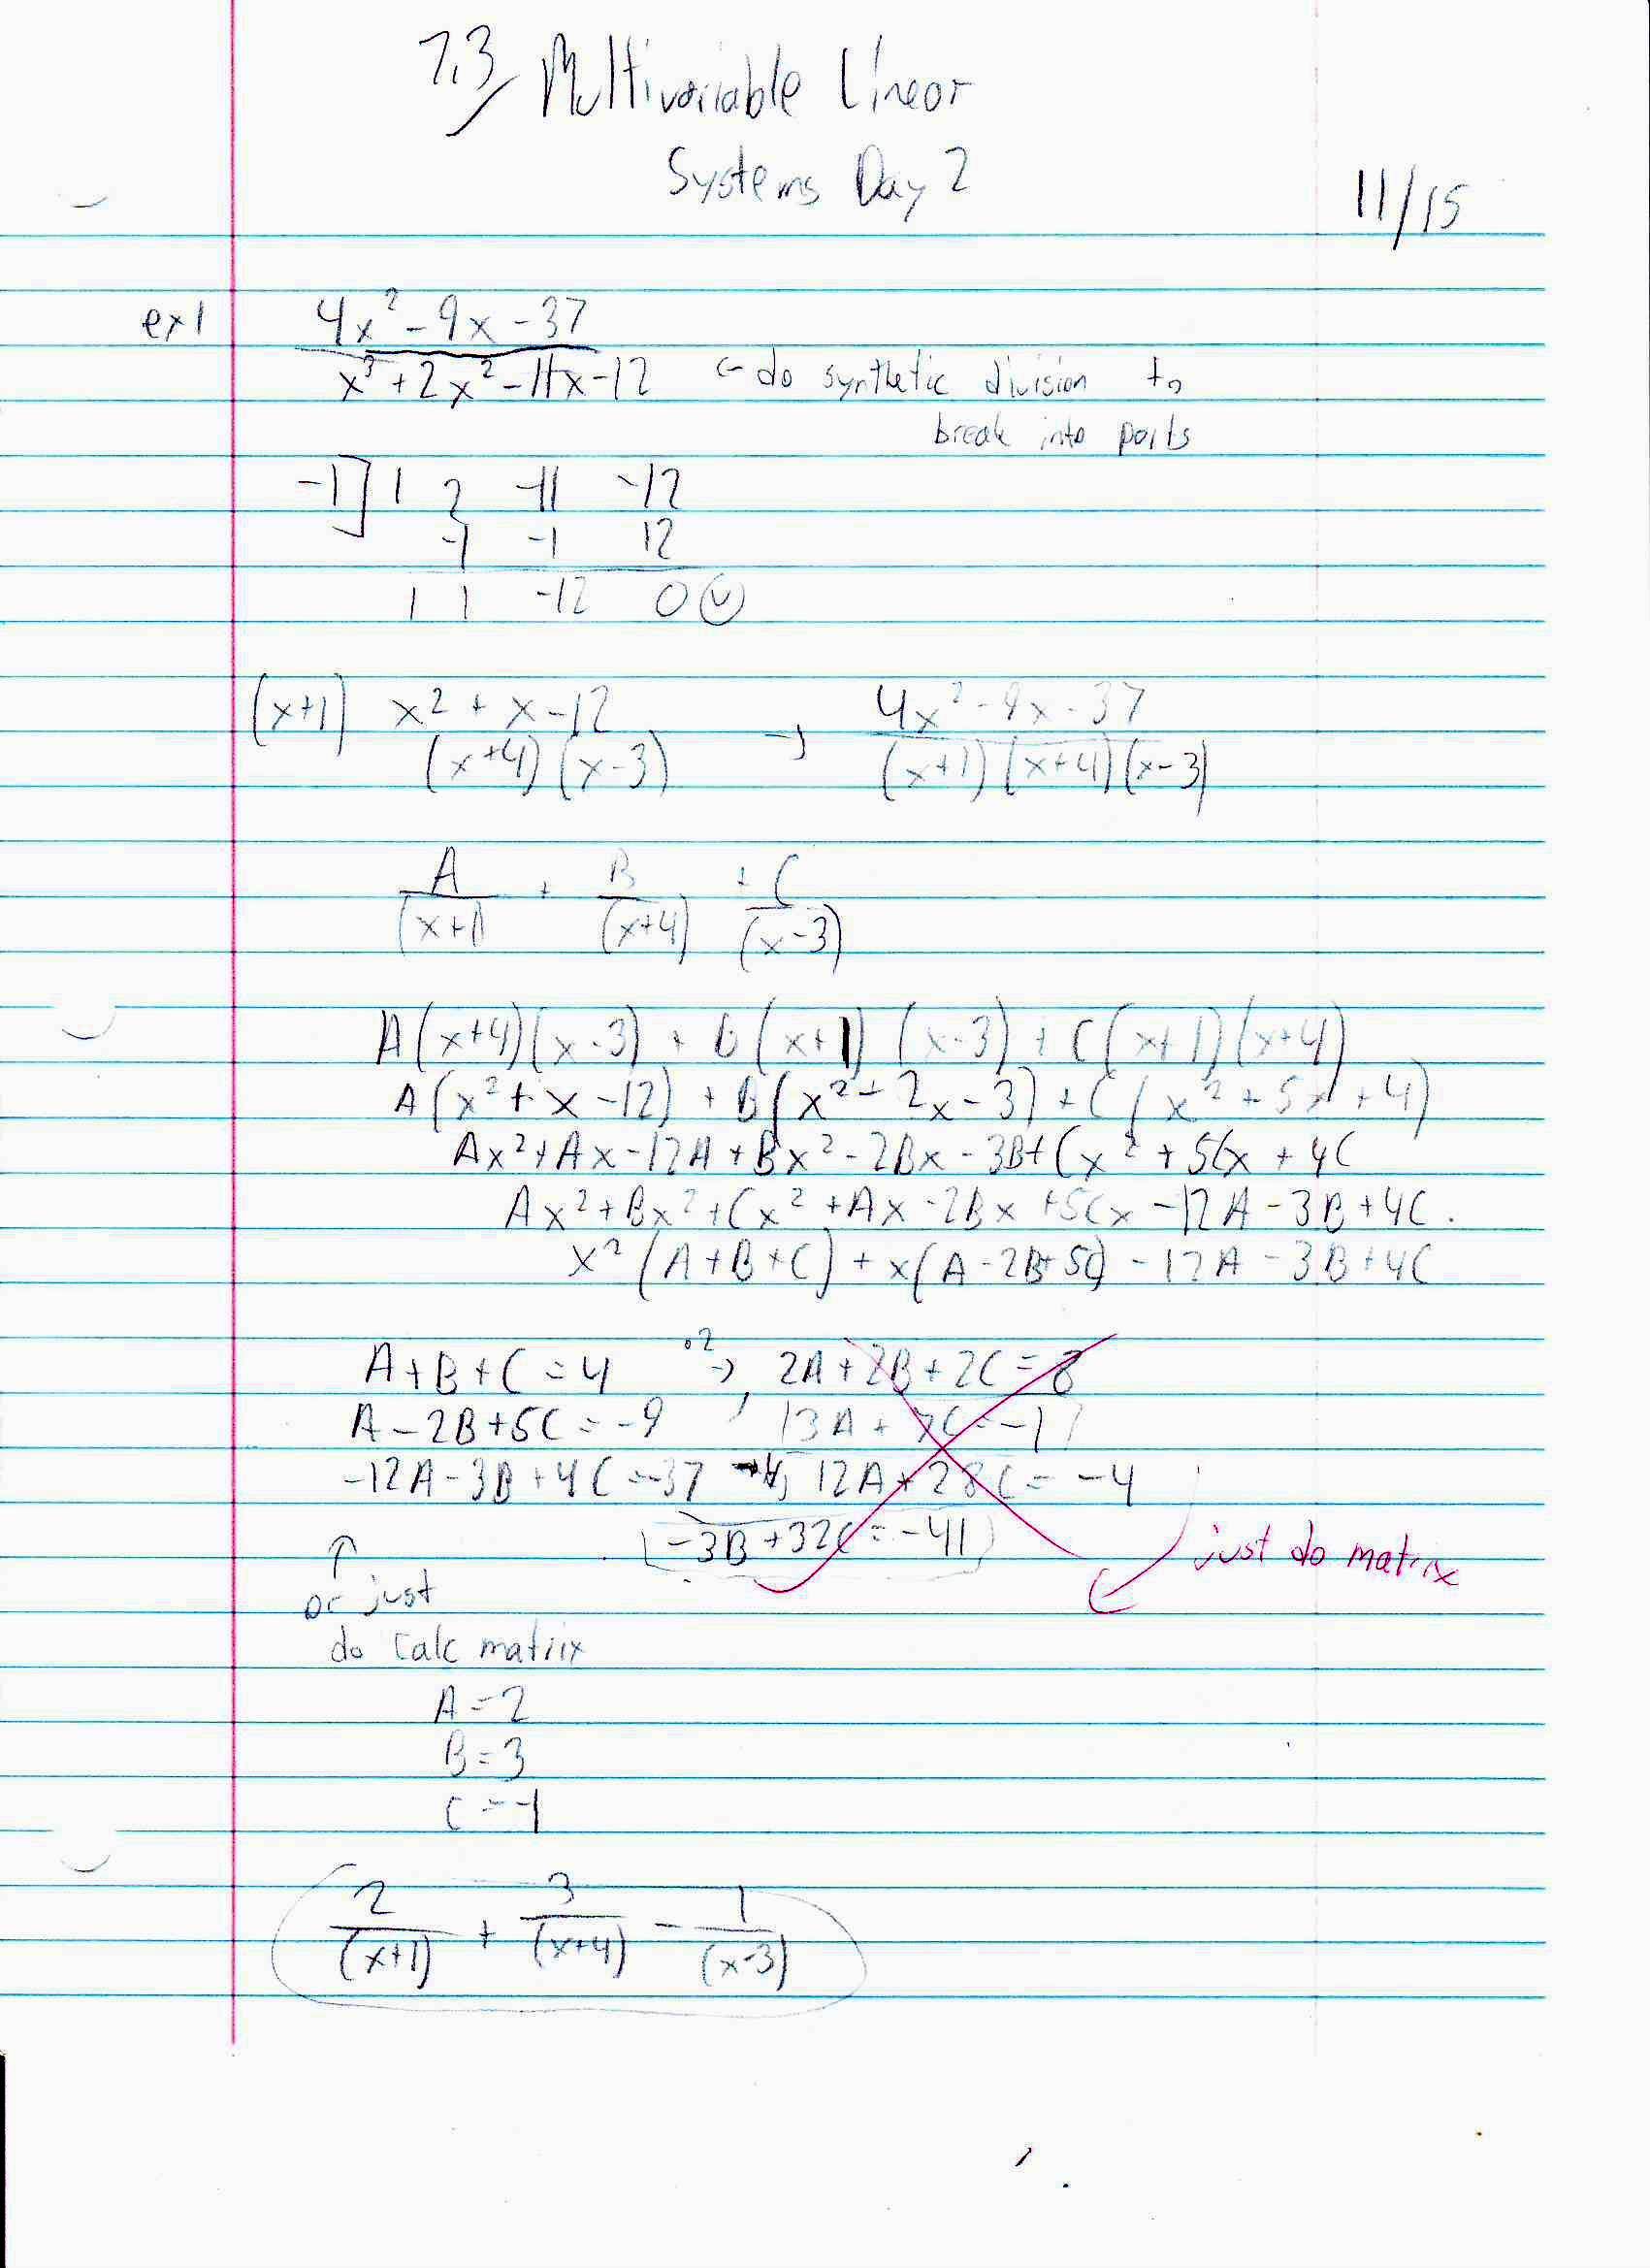 7.3 Multivariable Linear
Systems Day 2
11/15
ex1 4x² - 9x - 37
x³ + 2x² - 11x - 12 ← do synthetic division to
break into parts
-1] 1 2 -11 -12
-1 -1 12
1 1 -12 0
(x+1) x² + x - 12 → 4x² - 9x - 37
(x+4)(x-3) (x+1)(x+4)(x-3)
A + B + C
(x+1) (x+4) (x-3)
A(x+4)(x-3) + B(x+1)(x-3) + C(x+1)(x+4)
A(x²+x-12) + B(x²-2x-3) + C(x²+5x+4)
Ax²+Ax-12A+Bx²-2Bx-3B+Cx²+5Cx+4C
Ax²+Bx²+Cx²+Ax-2Bx+5Cx-12A-3B+4C.
x²(A+B+C)+x(A-2B+5C)-12A-3B+4C
A+B+C=4 ·2→ 2A+2B+2C=8
A-2B+5C=-9 3A+7C=-1
-12A-3B+4C=-37 12A+28C=-4
-3B+32C=-41
just do matrix
↑
or just
do calc matrix
A=2
B=3
C=-1
2 + 3 - 1
(x+1) (x+4) (x-3)